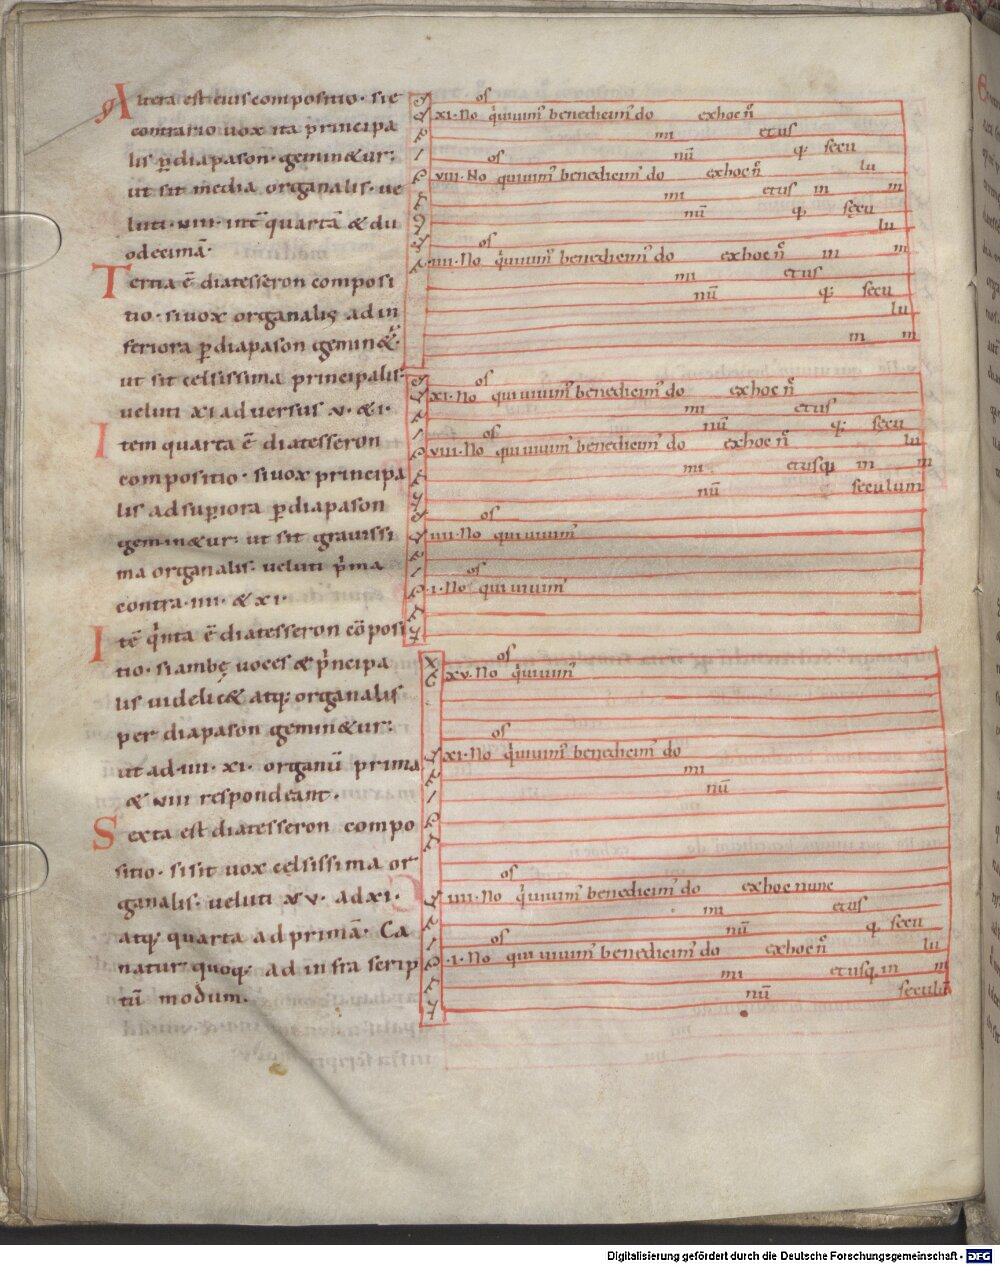 Altera est eius compositio· si e
contrario uox ita principa
lis p̄ diapason· gemin&ur;
ut sit media organalis· ue
luti· VIII· int̄ quartā & du
odecimā·
Tertia ē diatesseron composi
tio· si uox organalis ad in
feriora p̄ diapason gemin&ur̄·
ut sit celsissima principalis·
ueluti XI aduersus V· & I·
Item quarta ē diatesseron
compositio· si uox principa
lis ad sup̄iora p̄ diapason
gemin&ur· ut sit grauissi
ma organalis· ueluti p̄ma
contra· IIII· & XI·
Itē q̇nta ē diatesseron cōposi
tio· si ambę uoces & p̄ncipa
lis uidelic& atq; organalis
per diapason gemin&ur;
ut ad· IIII· XI· organū prima
& VIII respondeant·
Sexta est diatesseron compo
sitio· si sit uox celsissima or
ganalis· ueluti XV· ad XI·
atq; quarta ad primā· Ca
natur quoq; ad infra scrip
tū modum·
os
XI· No q̇uiuim̄ benedicim̄ do ex hoc n̄
mi &us
nū q; secu
os lu
VIII· No quiuim̄ benedicim̄ do ex hoc n̄
mi &us in m
nū q; secu
lu
os
IIII· No q̇uiuim̄ benedicim̄ do ex hoc n̄ in m
mi &us
nū q; secu
lu
in m
os
XI· No qui uiuim̄ benedicim̄ do ex hoc n̄
mi &us
nū q; secu
os lu
VIII· No qui uiuim̄ benedicim̄ do ex hoc n̄
mi &usq; in m
nū seculum
os
IIII· No qui uiuim̄
os
I· No qui uiuim̄
os
XV· No q̇uiuim̄
os
XI· No q̇uiuim̄ benedicim̄ do
mi
nū
os
IIII· No q̇uiuim̄ benedicim̄ do ex hoc nunc
mi &us
nū q; secu
os lu
·I· No qui uiuim̄ benedicim̄ do ex hoc n̄
mi &usq; in m
nū seculū
Digitalisierung gefördert durch die Deutsche Forschungsgemeinschaft - DFG